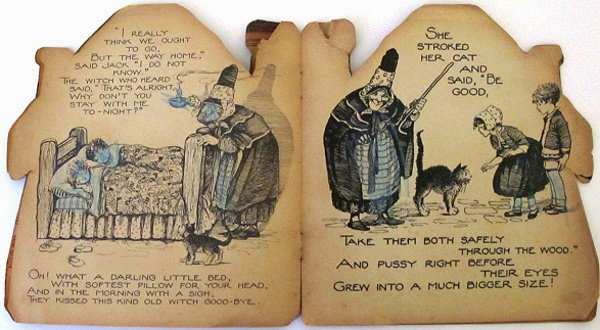 "I REALLY
THINK WE OUGHT
TO GO,
BUT THE WAY HOME,"
SAID JACK "I DO NOT
KNOW."
THE WITCH WHO HEARD
SAID, "THAT'S ALRIGHT,
WHY DON'T YOU
STAY WITH ME
TO-NIGHT?"
OH! WHAT A DARLING LITTLE BED,
WITH SOFTEST PILLOW FOR YOUR HEAD,
AND IN THE MORNING WITH A SIGH,
THEY KISSED THIS KIND OLD WITCH GOOD-BYE.
SHE
STROKED
HER CAT
AND
SAID, "BE
GOOD,
TAKE THEM BOTH SAFELY
THROUGH THE WOOD."
AND PUSSY RIGHT BEFORE
THEIR EYES
GREW INTO A MUCH BIGGER SIZE!